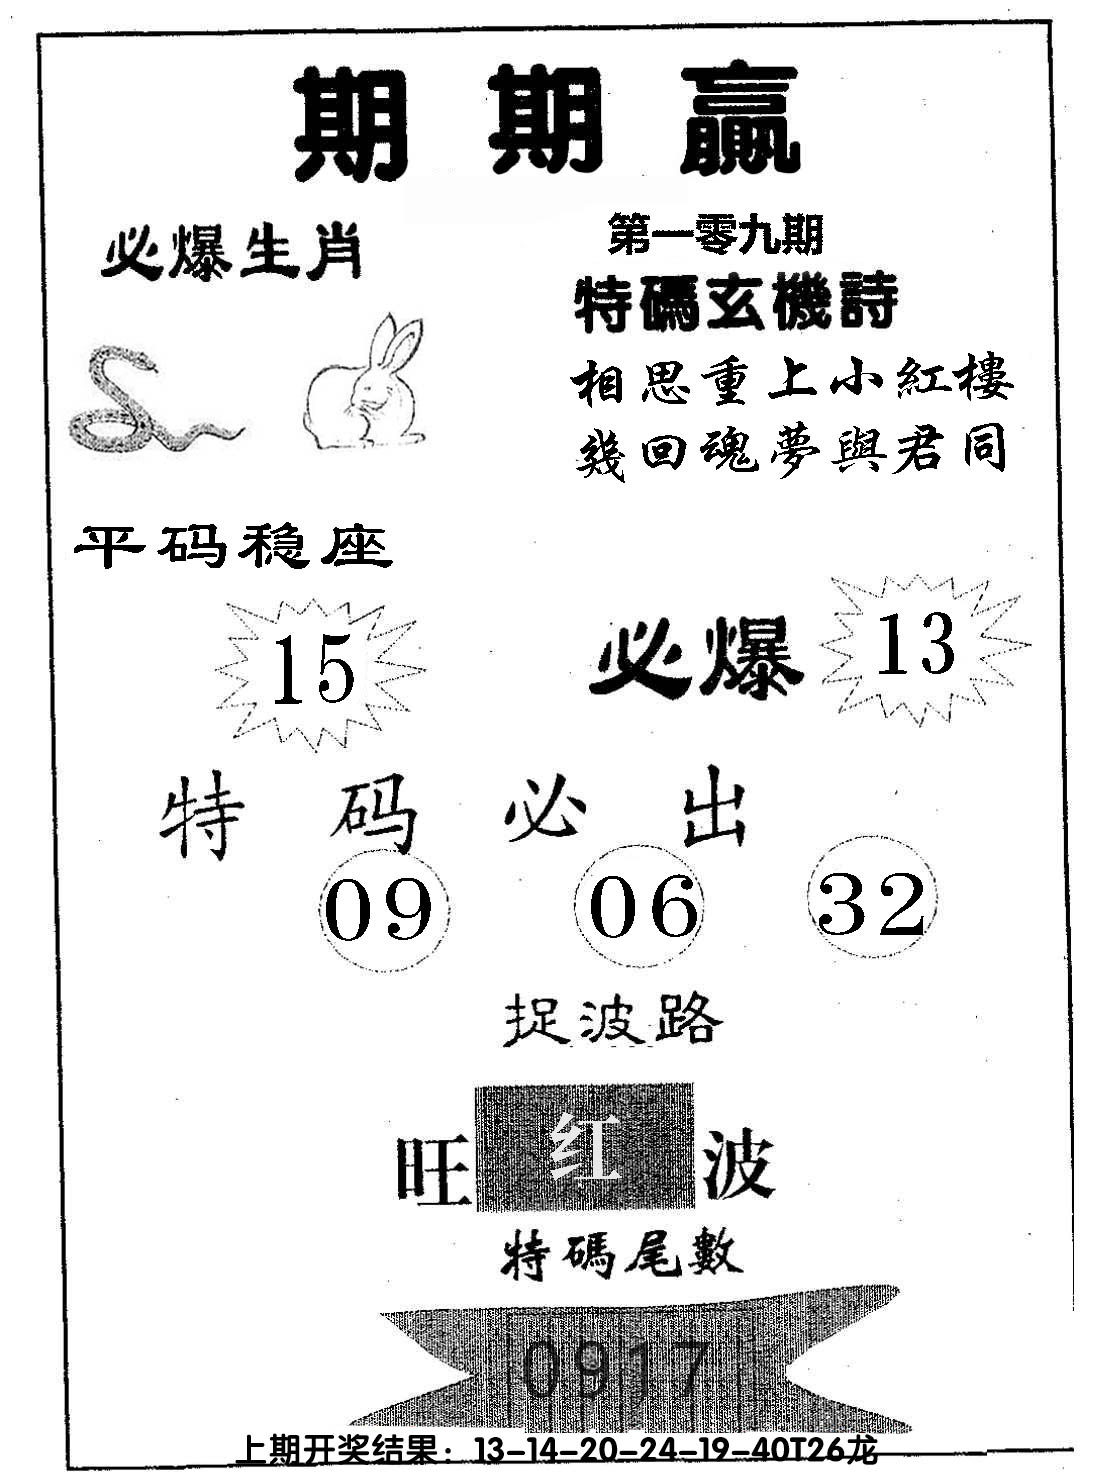 期期赢
必爆生肖
第一零九期
特碼玄機詩
相思重上小紅樓
幾回魂夢與君同
平码稳座
15
必爆 13
特码必出
09 06 32
捉波路
旺 红 波
特碼尾數
0917
上期开奖结果：13-14-20-24-19-40T26龙